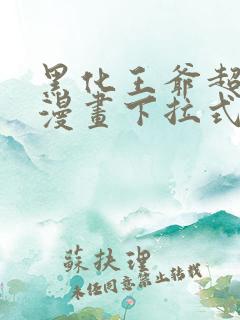 黑化王爺超
漫畫下拉式
蘇扶璃
未经同意禁止转载